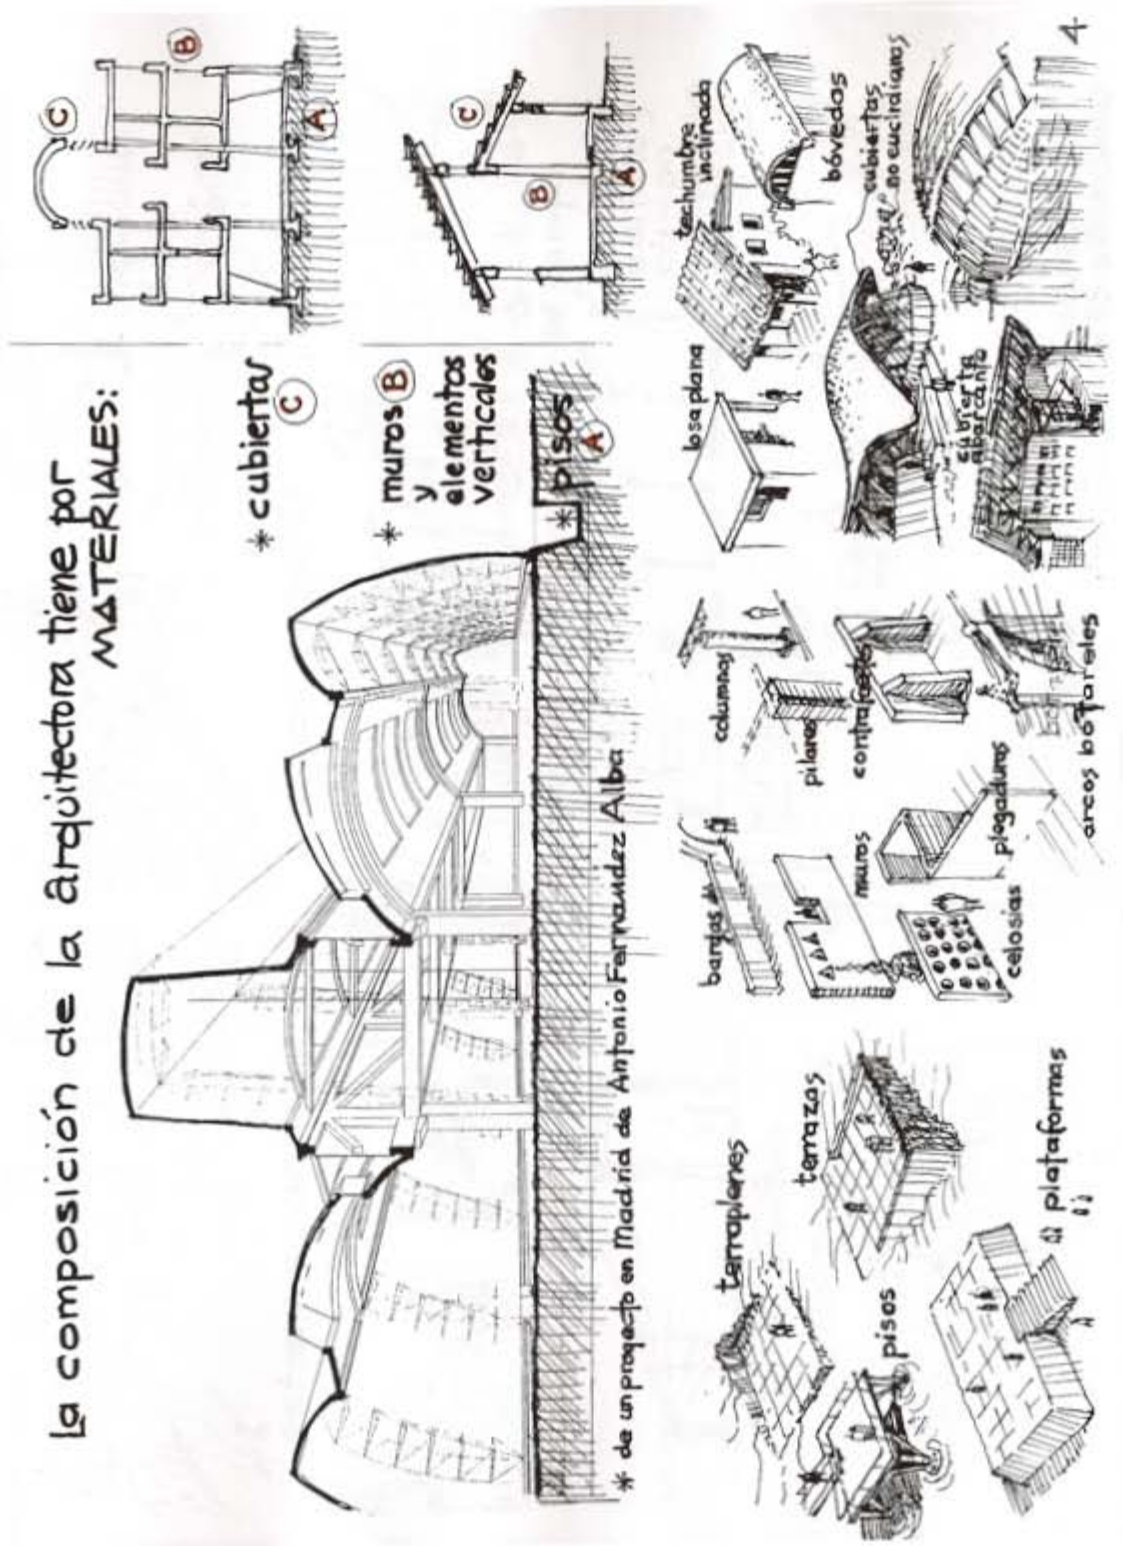 La composición de la arquitectura tiene por
MATERIALES:
* cubiertas
C
* muros B
y
elementos
verticales
* pisos
A
C
B
A
C
B
A
* de un proyecto en Madrid de Antonio Fernandez Alba
terraplenes
terrazas
pisos
plataformas
bardas
muros
celosias
plegaduras
columnas
pilares
contrafuertes
arcos botareles
losa plana
techumbre
inclinada
bóvedas
cubiertas
no eucluidianas
cubierta
4